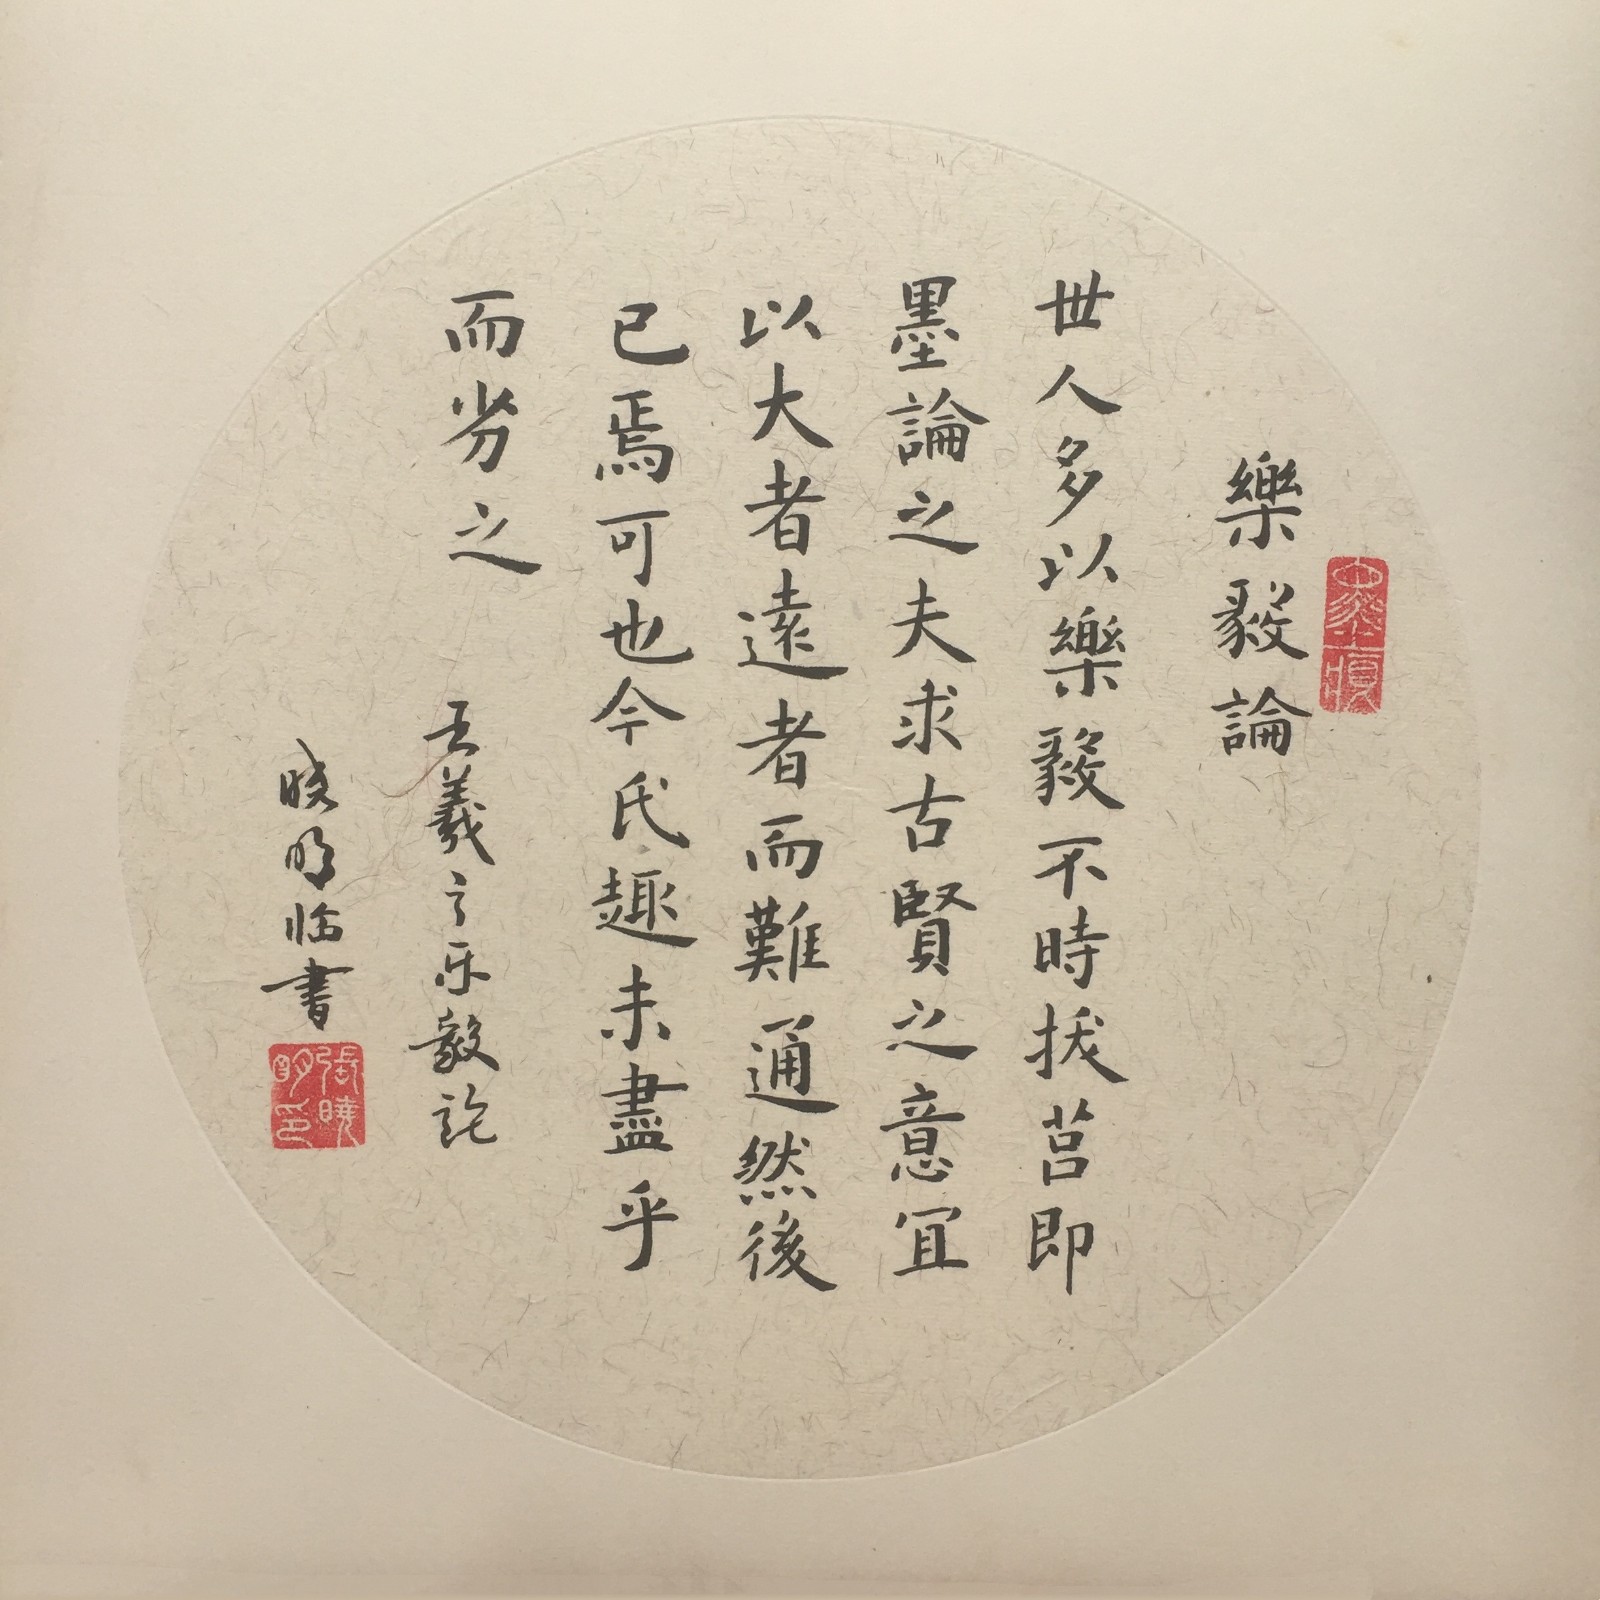 樂毅論
世人多以樂毅不時拔莒即
墨論之夫求古賢之意宜
以大者遠者而難通然後
已焉可也今氏趣未盡乎
而劣之
王羲之乐毅论
晓明临书
張曉明印